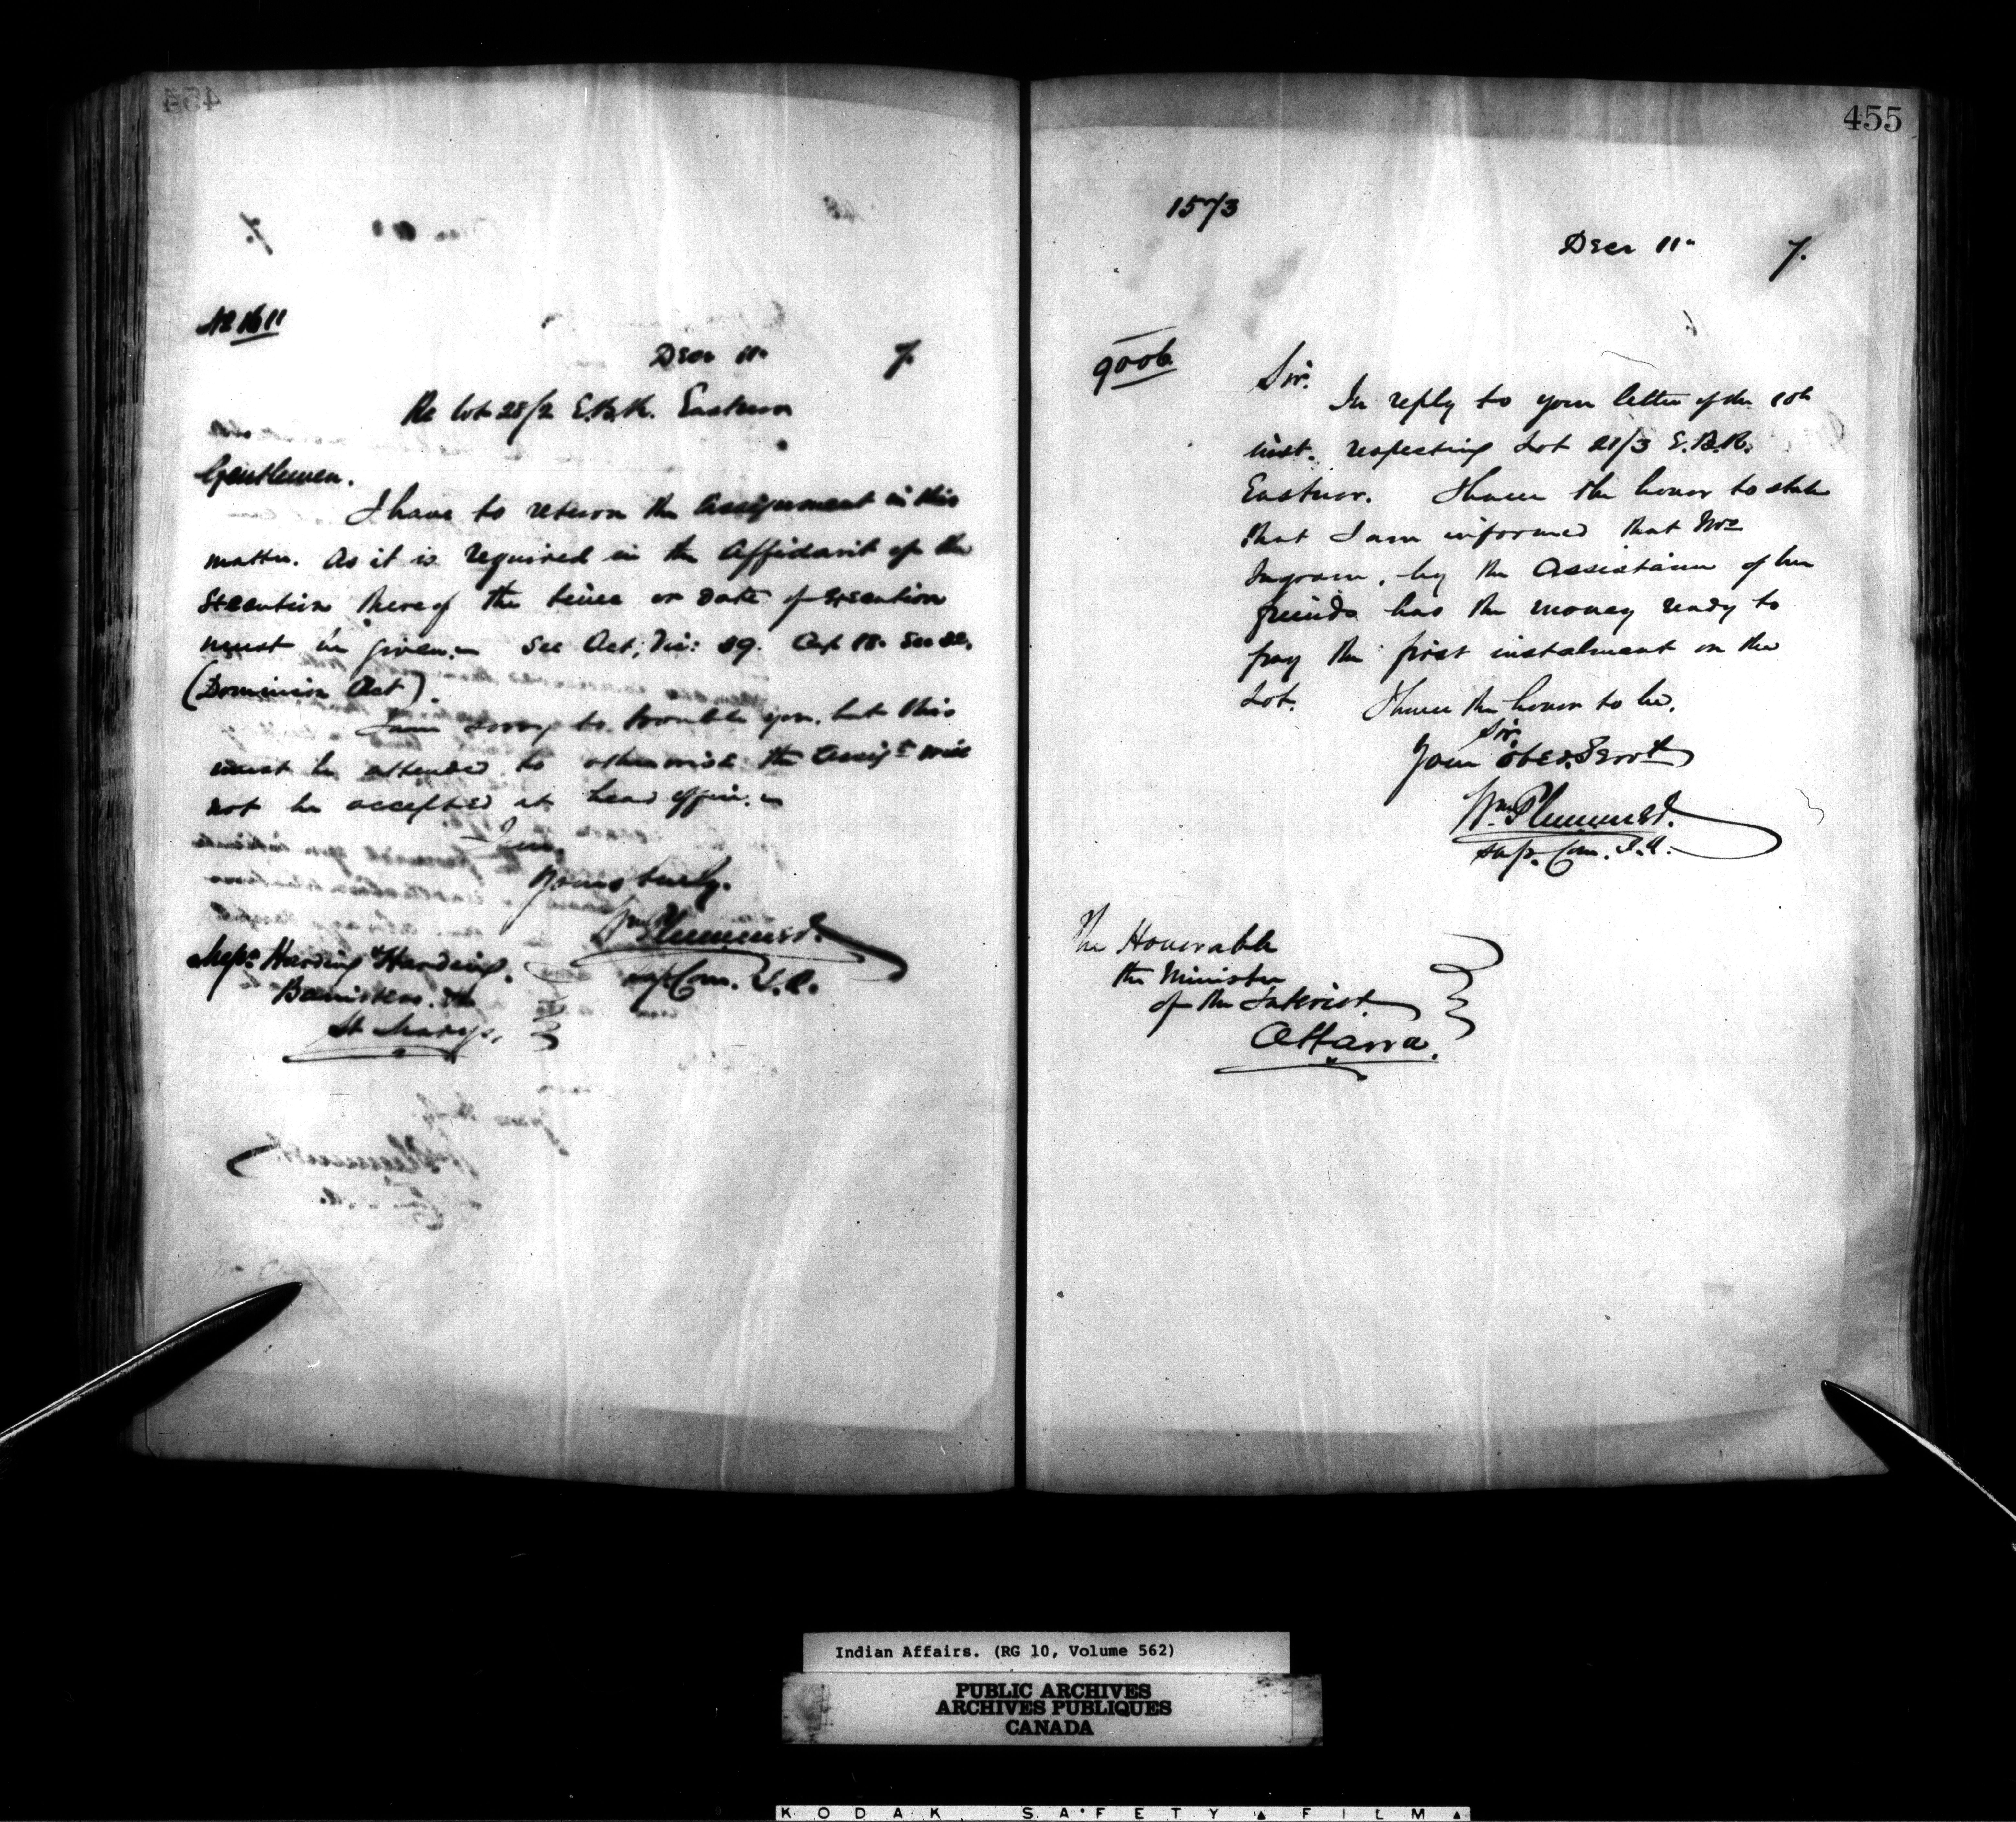 454
No 1611
Decr 11th 7.
Re Lot 28/2 E.B.R. Eastnor
Gentlemen.
I have to return the assignment in this
matter. As it is required in the Affidavit of the
Execution thereof the time or date of Execution
must be given. See Act, Vic: 39. Cap 18. Sec
(Dominion Act).
I am sorry to trouble you, but this
must be attended to otherwise the Assigt will
not be accepted at head office.
I am,
Yours truly.
Wm Plummer.
Sup. Com. I.A.
Messrs Harding & Harding.
Barristers. &c
St Marys,
455
157/3
Decr 11th 7.
9006
Sir.
In reply to your letter of the 10th
inst. respecting Lot 21/3 E.B.R.
Eastnor. I have the honor to state
that I am informed that Mrs
Ingram, by the assistance of her
friends has the money ready to
pay the first instalment on the
Lot. I have the honor to be,
Sir.
Your obed. Servt
Wm Plummer.
Sup. Com. I.A.
The Honorable
the Minister
of the Interior.
Ottawa.
Indian Affairs. (RG 10, Volume 562)
PUBLIC ARCHIVES
ARCHIVES PUBLIQUES
CANADA
KODAK SAFETY FILM